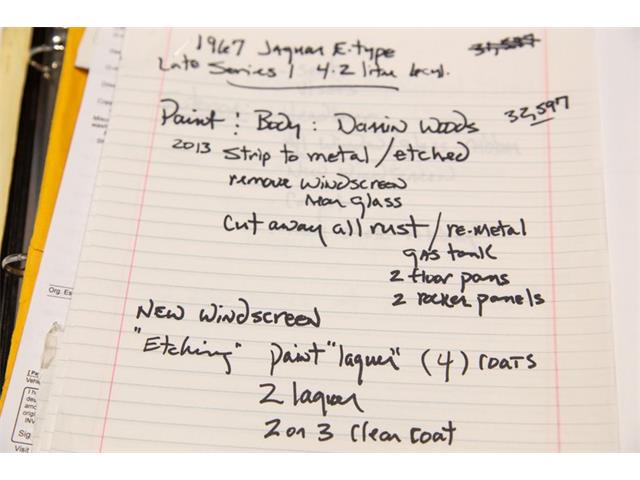 1967 Jaguar E-type
Late Series 1 4.2 litre
Paint : Body : Darrin Woods 32,597
2013 Strip to metal / etched
remove windscreen
rear glass
Cut away all rust / re-metal
gas tank
2 floor pans
2 rocker panels
New Windscreen
"Etching" paint "laquer" (4) coats
2 laquer
2 or 3 clear coat
Org. Es
Sig
Visit